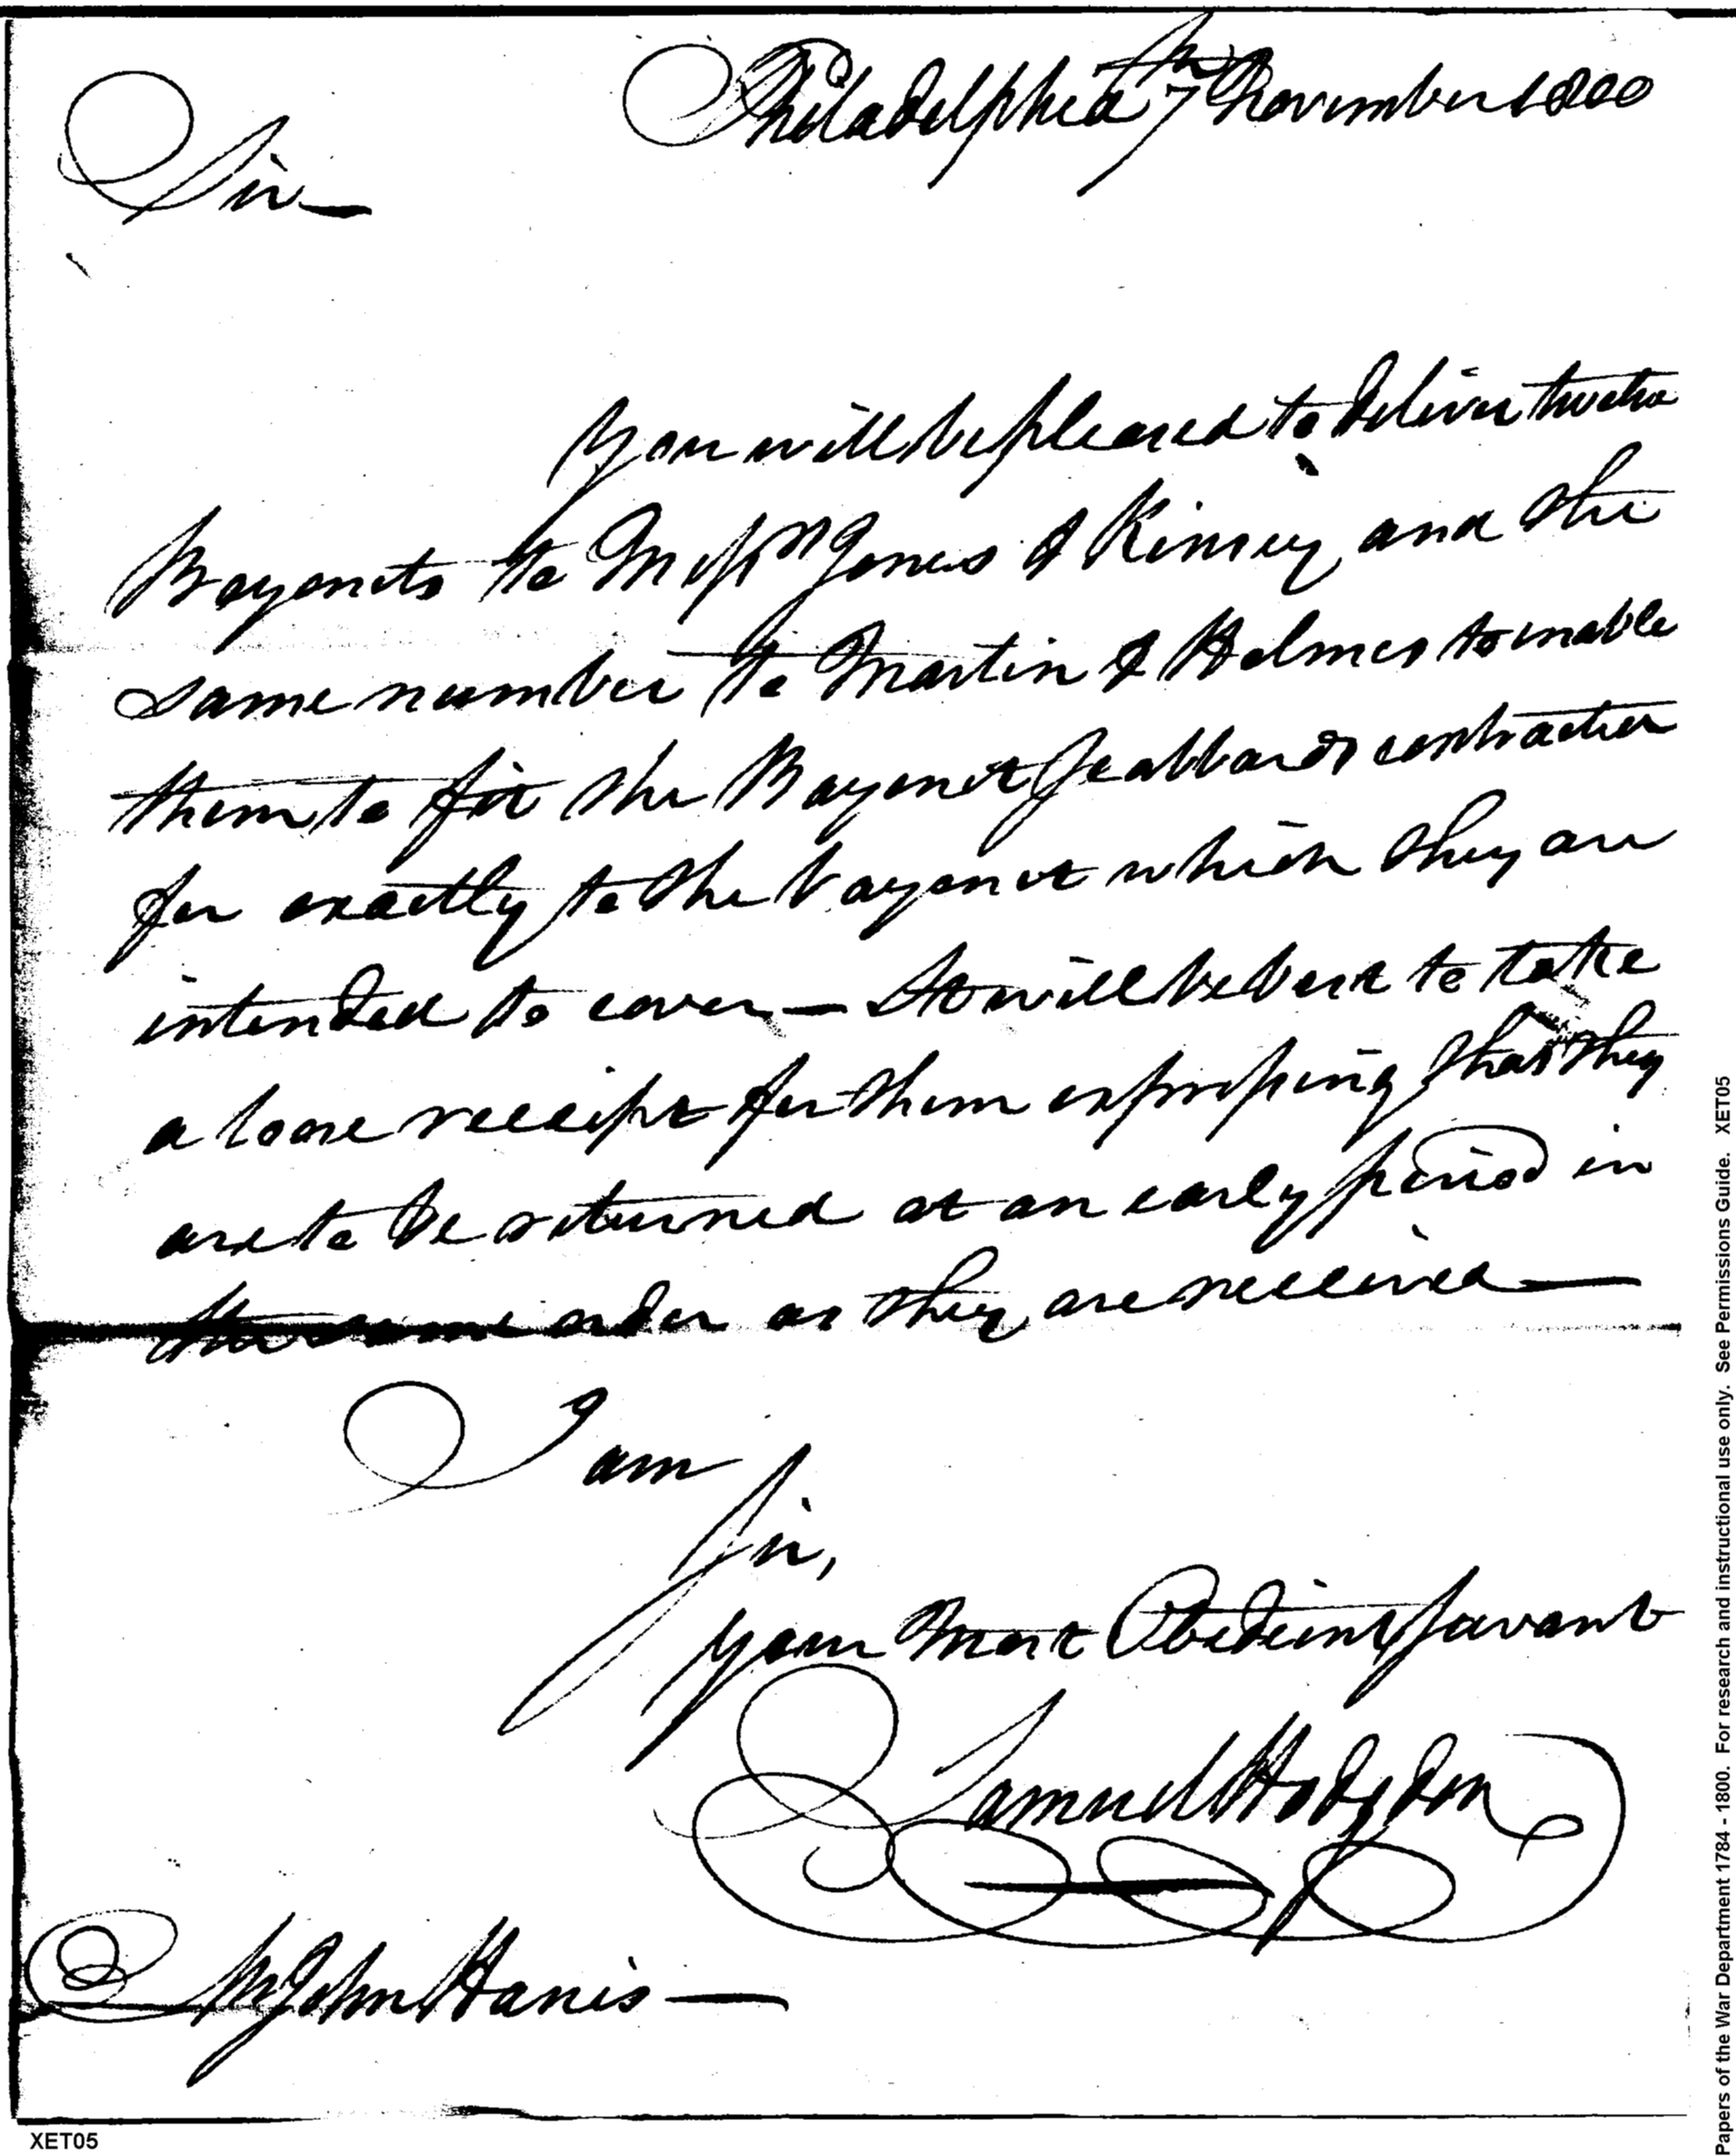 Philadelphia 7th November 1800
Sir
You will be pleased to deliver twelve
Bayonets to Messrs Jones & Kinsey and the
same number to Martin & Holmes to enable
them to fit the Bayonet Scabbards contracted
for exactly to the bayonet which they are
intended to cover — It will be best to take
a loose receipt for them expressing that they
are to be returned at an early period in
the same order as they are received —
I am
Sir,
your Most Obedient Servant
Samuel Hodgdon
Mr John Harris —
XET05
Papers of the War Department 1784 - 1800. For research and instructional use only. See Permissions Guide. XET05